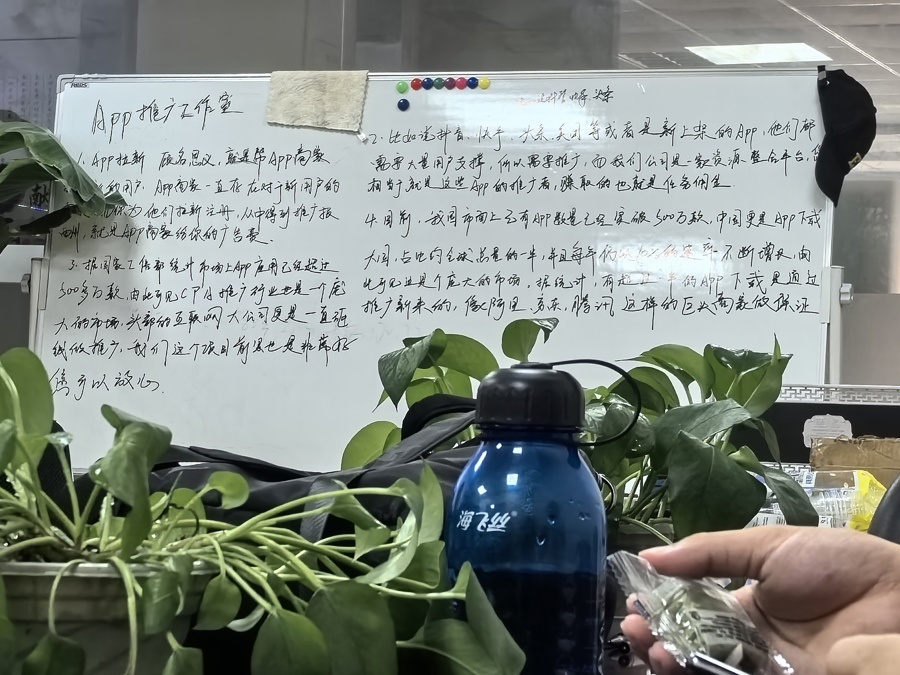 App推广工作室
1. App拉新 顾名思义,就是帮App商家
用户,App商家一直存在对于新用户的
你为他们拉新注册,从中得到推广报
酬,就是App商家给你的广告费.
3. 据国家工信部统计市场上App应用已经超过
500多万款,由此可见CPA推广行业也是一个庞
大的市场,头部的互联网大公司更是一直砸
钱做推广,我们这个项目前景也是非常好
您可以放心.
2. 比如说抖音、快手、头条、美团等或者是新上架的App,他们都
需要大量用户支撑,所以需要推广,而我们公司是一家资源整合平台,
相当于就是这些App的推广者,赚取的也就是任务佣金.
4. 目前,我国市面上已有App数量已经突破500万款,中国更是App下载
大国,占比约全球总量的一半,并且每年 不断增长,由
此可见这是个庞大的市场.据统计,有超过一半的App下载是通过
推广新来的,像阿里、京东、腾讯这样的巨头商家做保证